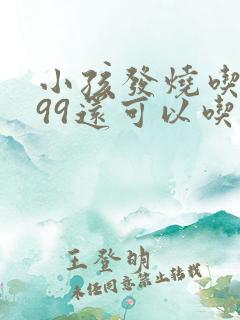 小孩發燒喫
99還可以喫
王登明
未经同意禁止转载